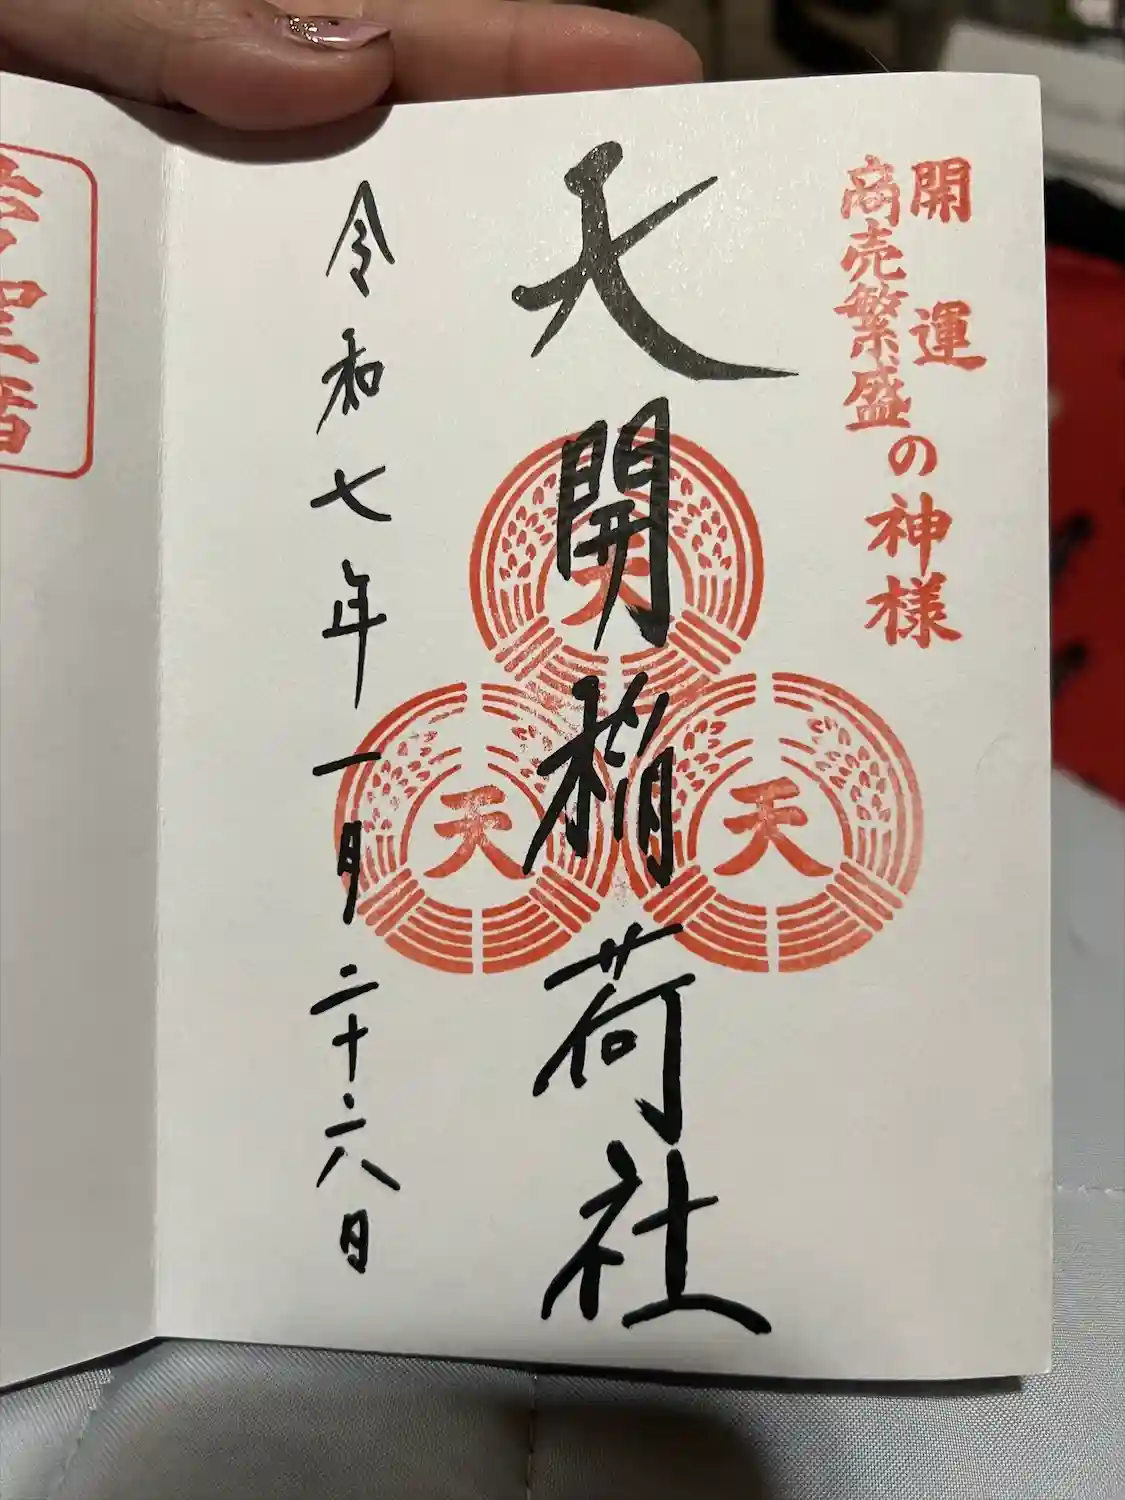 開運
商売繁盛
の神様
天開稲荷社
天
天
天
令和七年一月二十六日